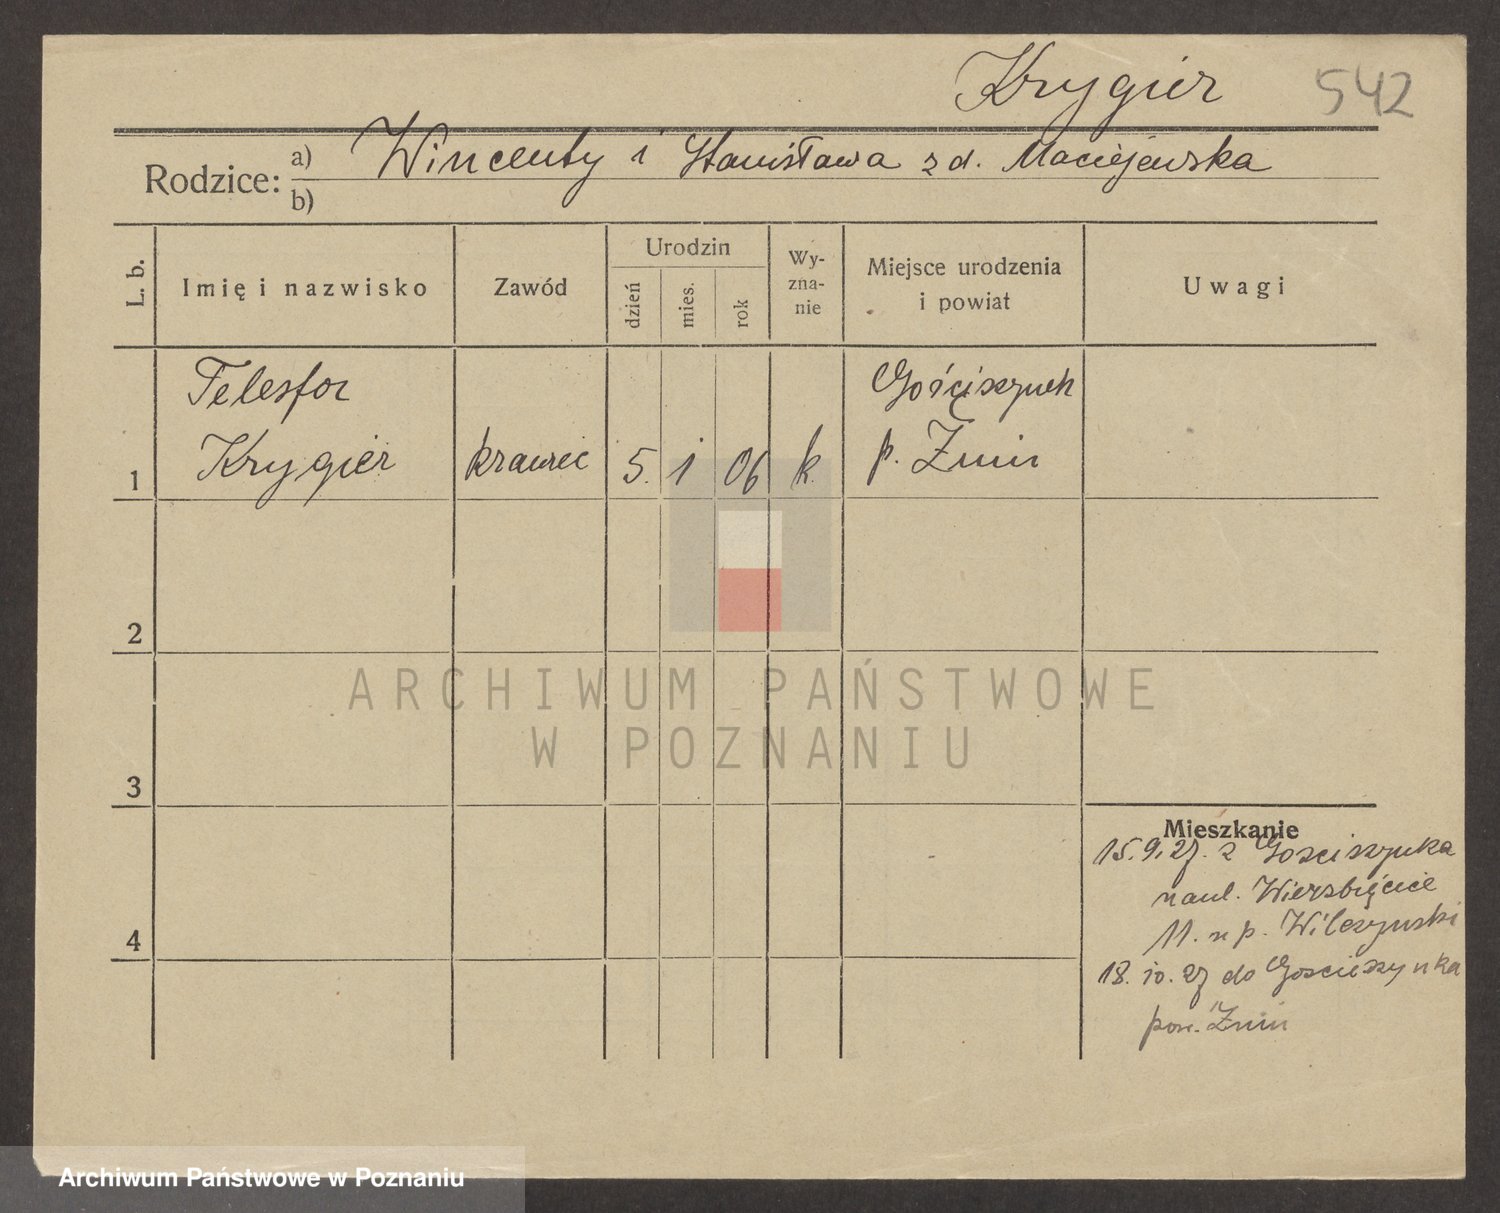 Krygier 542
Rodzice: a) Wincenty i Stanisława z d. Maciejewska
b)
L. b. Imię i nazwisko Zawód Urodzin dzień mies. rok Wy-zna-nie Miejsce urodzenia i powiat Uwagi
Telesfor Gościszynek
1 Krygier krawiec 5. 1 06 k. p. Żnin
2
ARCHIWUM PAŃSTWOWE
W POZNANIU
3
Mieszkanie
15.9.27. z Gościszynka
na ul. Wierzbięcice
11. u p. Wilczynski
4
18. 10. 27 do Gościeszynka
pow. Żnin
Archiwum Państwowe w Poznaniu